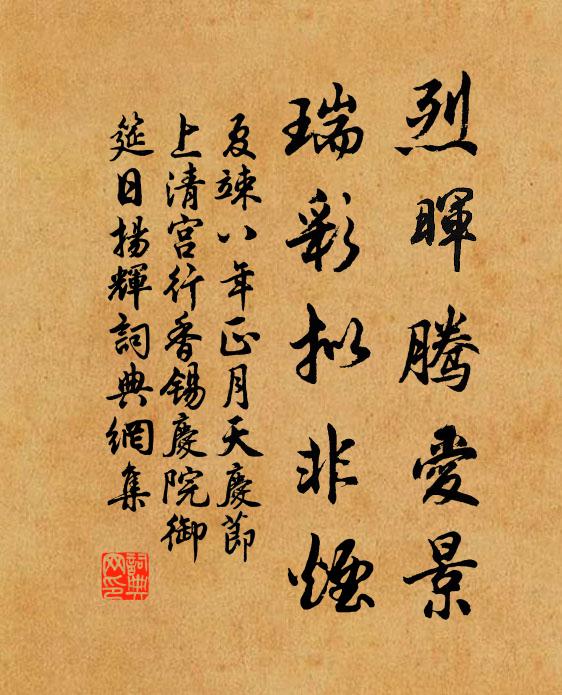 烈暉騰愛景
瑞彩拟非煙
夏竦八年正月天慶節
上清宮行香锡慶院御
筵日揚輝詞典網集
詞典
网印